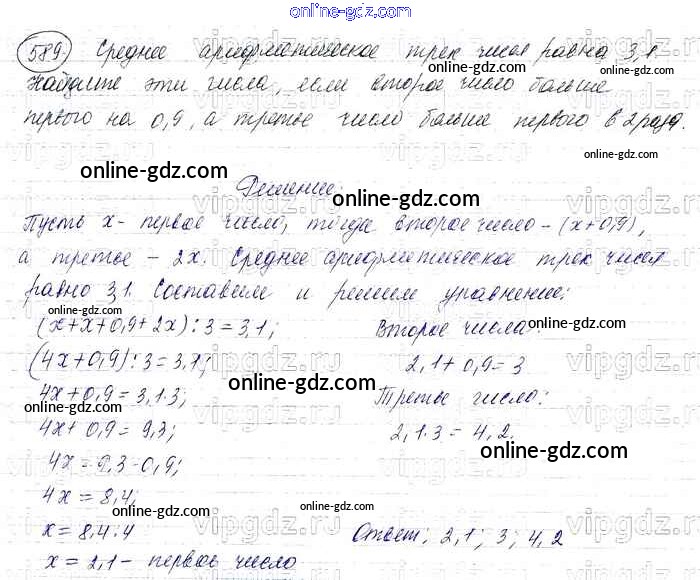 online-gdz.com
589. Среднее арифметическое трех чисел равно 3,1.
online-gdz.com
Найдите эти числа, если второе число больше
первого на 0,9, а третье число больше первого в 2 раза.
online-gdz.com
online-gdz.com
Решение:
online-gdz.com
Пусть x - первое число, тогда второе число - (x+0,9),
online-gdz.com
а третье - 2x. Среднее арифметическое трех чисел
равно 3,1. Составим и решим уравнение:
online-gdz.com
(x+x+0,9+2x):3=3,1;
(4x+0,9):3=3,1;
4x+0,9=3,1·3;
online-gdz.com
4x+0,9=9,3;
4x=9,3-0,9;
4x=8,4;
x=8,4:4
x=2,1 - первое число
Второе числа:
online-gdz.com
2,1+0,9=3
Третье число:
online-gdz.com
2,1·3=4,2.
online-gdz.com
online-gdz.com
online-gdz.com
Ответ: 2,1; 3; 4,2
online-gdz.com
vipgdz.ru